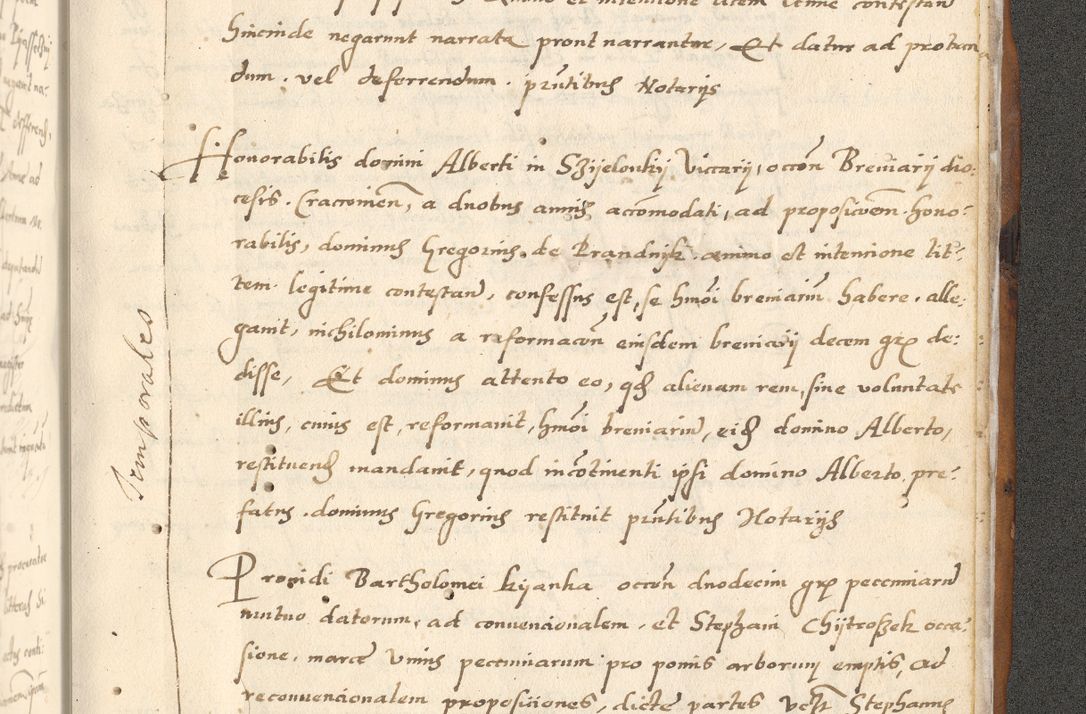 hincinde negarunt narrata pront narrantur, Et datur ad proban
dum. vel deferrendum. pñtibus Notarijs
Honorabilis domini Alberti in Szijelonkij Viccarij, occõn Breviarij dio-
cesis. Cracovieñ, a duobus annis accõmodati, ad proposicõem. hono-
rabilis, dominus Gregorius. de Prandnijk. animo et intenione lit-
tem legitime contestanđ, confessus est, se hmõi breviariũ habere. alle-
gavit, nichilominus a reformacõn eiusdem breviarij decem grx de-
disse, Et dominus attento eo, qđ alienam rem, sine voluntate
illius, cuius est, reformavit, hmõi breviariũ, eiđ domino Alberto,
restituenđ mandavit, quod incõtinenti ipsi domino Alberto pre-
fatus. dominus Gregorius restituit pñtibus Notarijs
Temporales
Providi Bartholomei Kijanka occõn duodecim grx pecuniarũ
mutuo datorum, ad convencionalem. et Stephani Chijtroszek occa-
sione. marce Unius pecuniarum pro pomis arborum emptis, ad
reconvencionalem proposiciones, dicte partes vcꝫ Stephanus